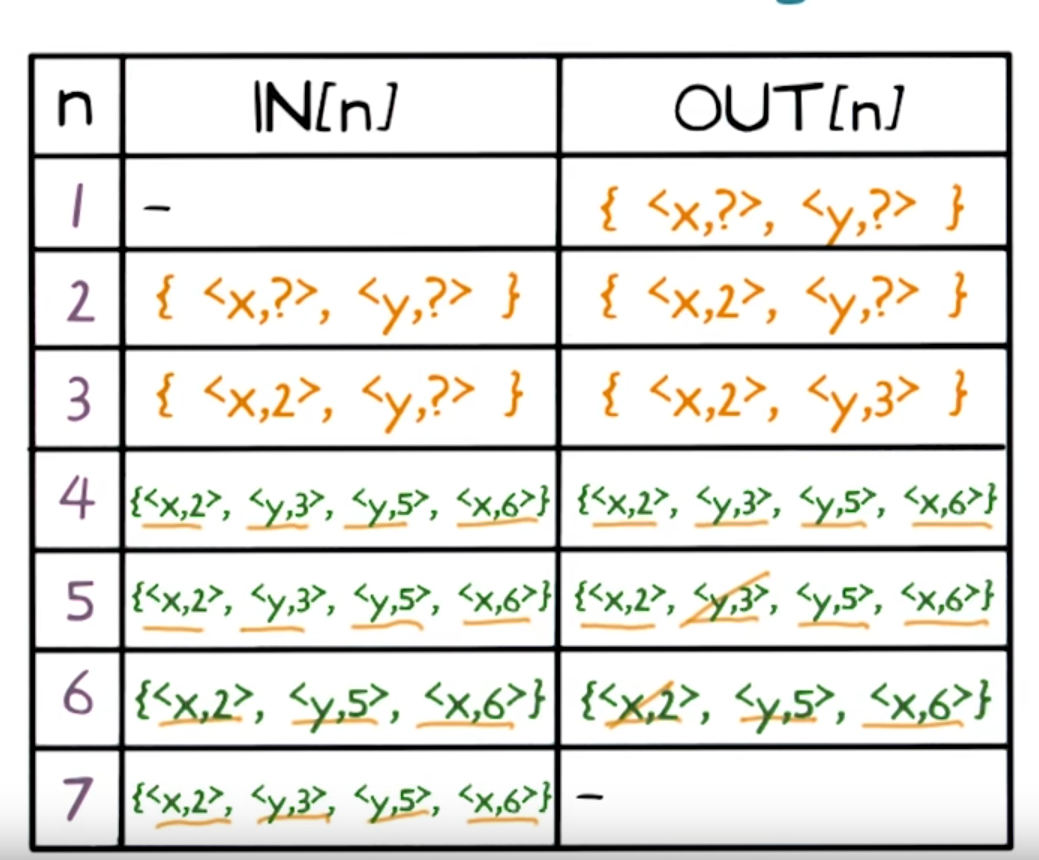 n IN[n] OUT[n]
1 – { <x,?>, <y,?> }
2 { <x,?>, <y,?> } { <x,2>, <y,?> }
3 { <x,2>, <y,?> } { <x,2>, <y,3> }
4 {<x,2>, <y,3>, <y,5>, <x,6>} {<x,2>, <y,3>, <y,5>, <x,6>}
5 {<x,2>, <y,3>, <y,5>, <x,6>} {<x,2>, <y,3>, <y,5>, <x,6>}
6 {<x,2>, <y,5>, <x,6>} {<x,2>, <y,5>, <x,6>}
7 {<x,2>, <y,3>, <y,5>, <x,6>} –